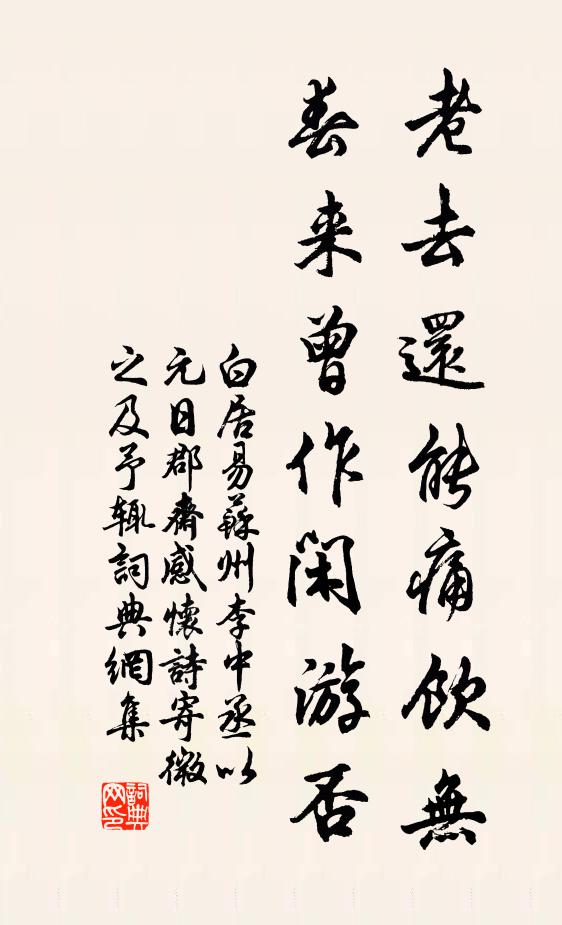 老去還能痛飲無
春来曾作閑游否
白居易蘇州李中丞以
元日郡齋感懷詩寄微
之及予輒詞典網集
詞典
网印